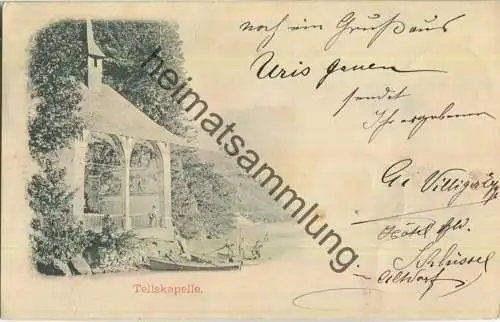 noch ein Gruß aus
Uris Gauen
sendet
Ihr ergebener
heimatsammlung.de
Hôtel
Schlüssel
Altdorf
Tellskapelle.